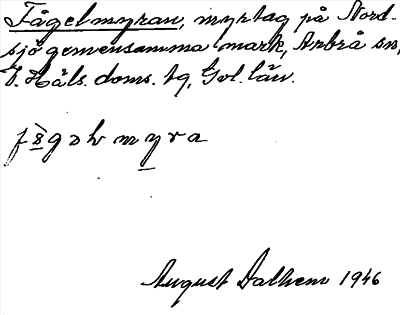 Fågelmyran, myrtag på Nord-
sjö gemensamma mark, Arbrå sn,
V. Häls. doms. tg, Gvl. län.
August Dalhem 1946